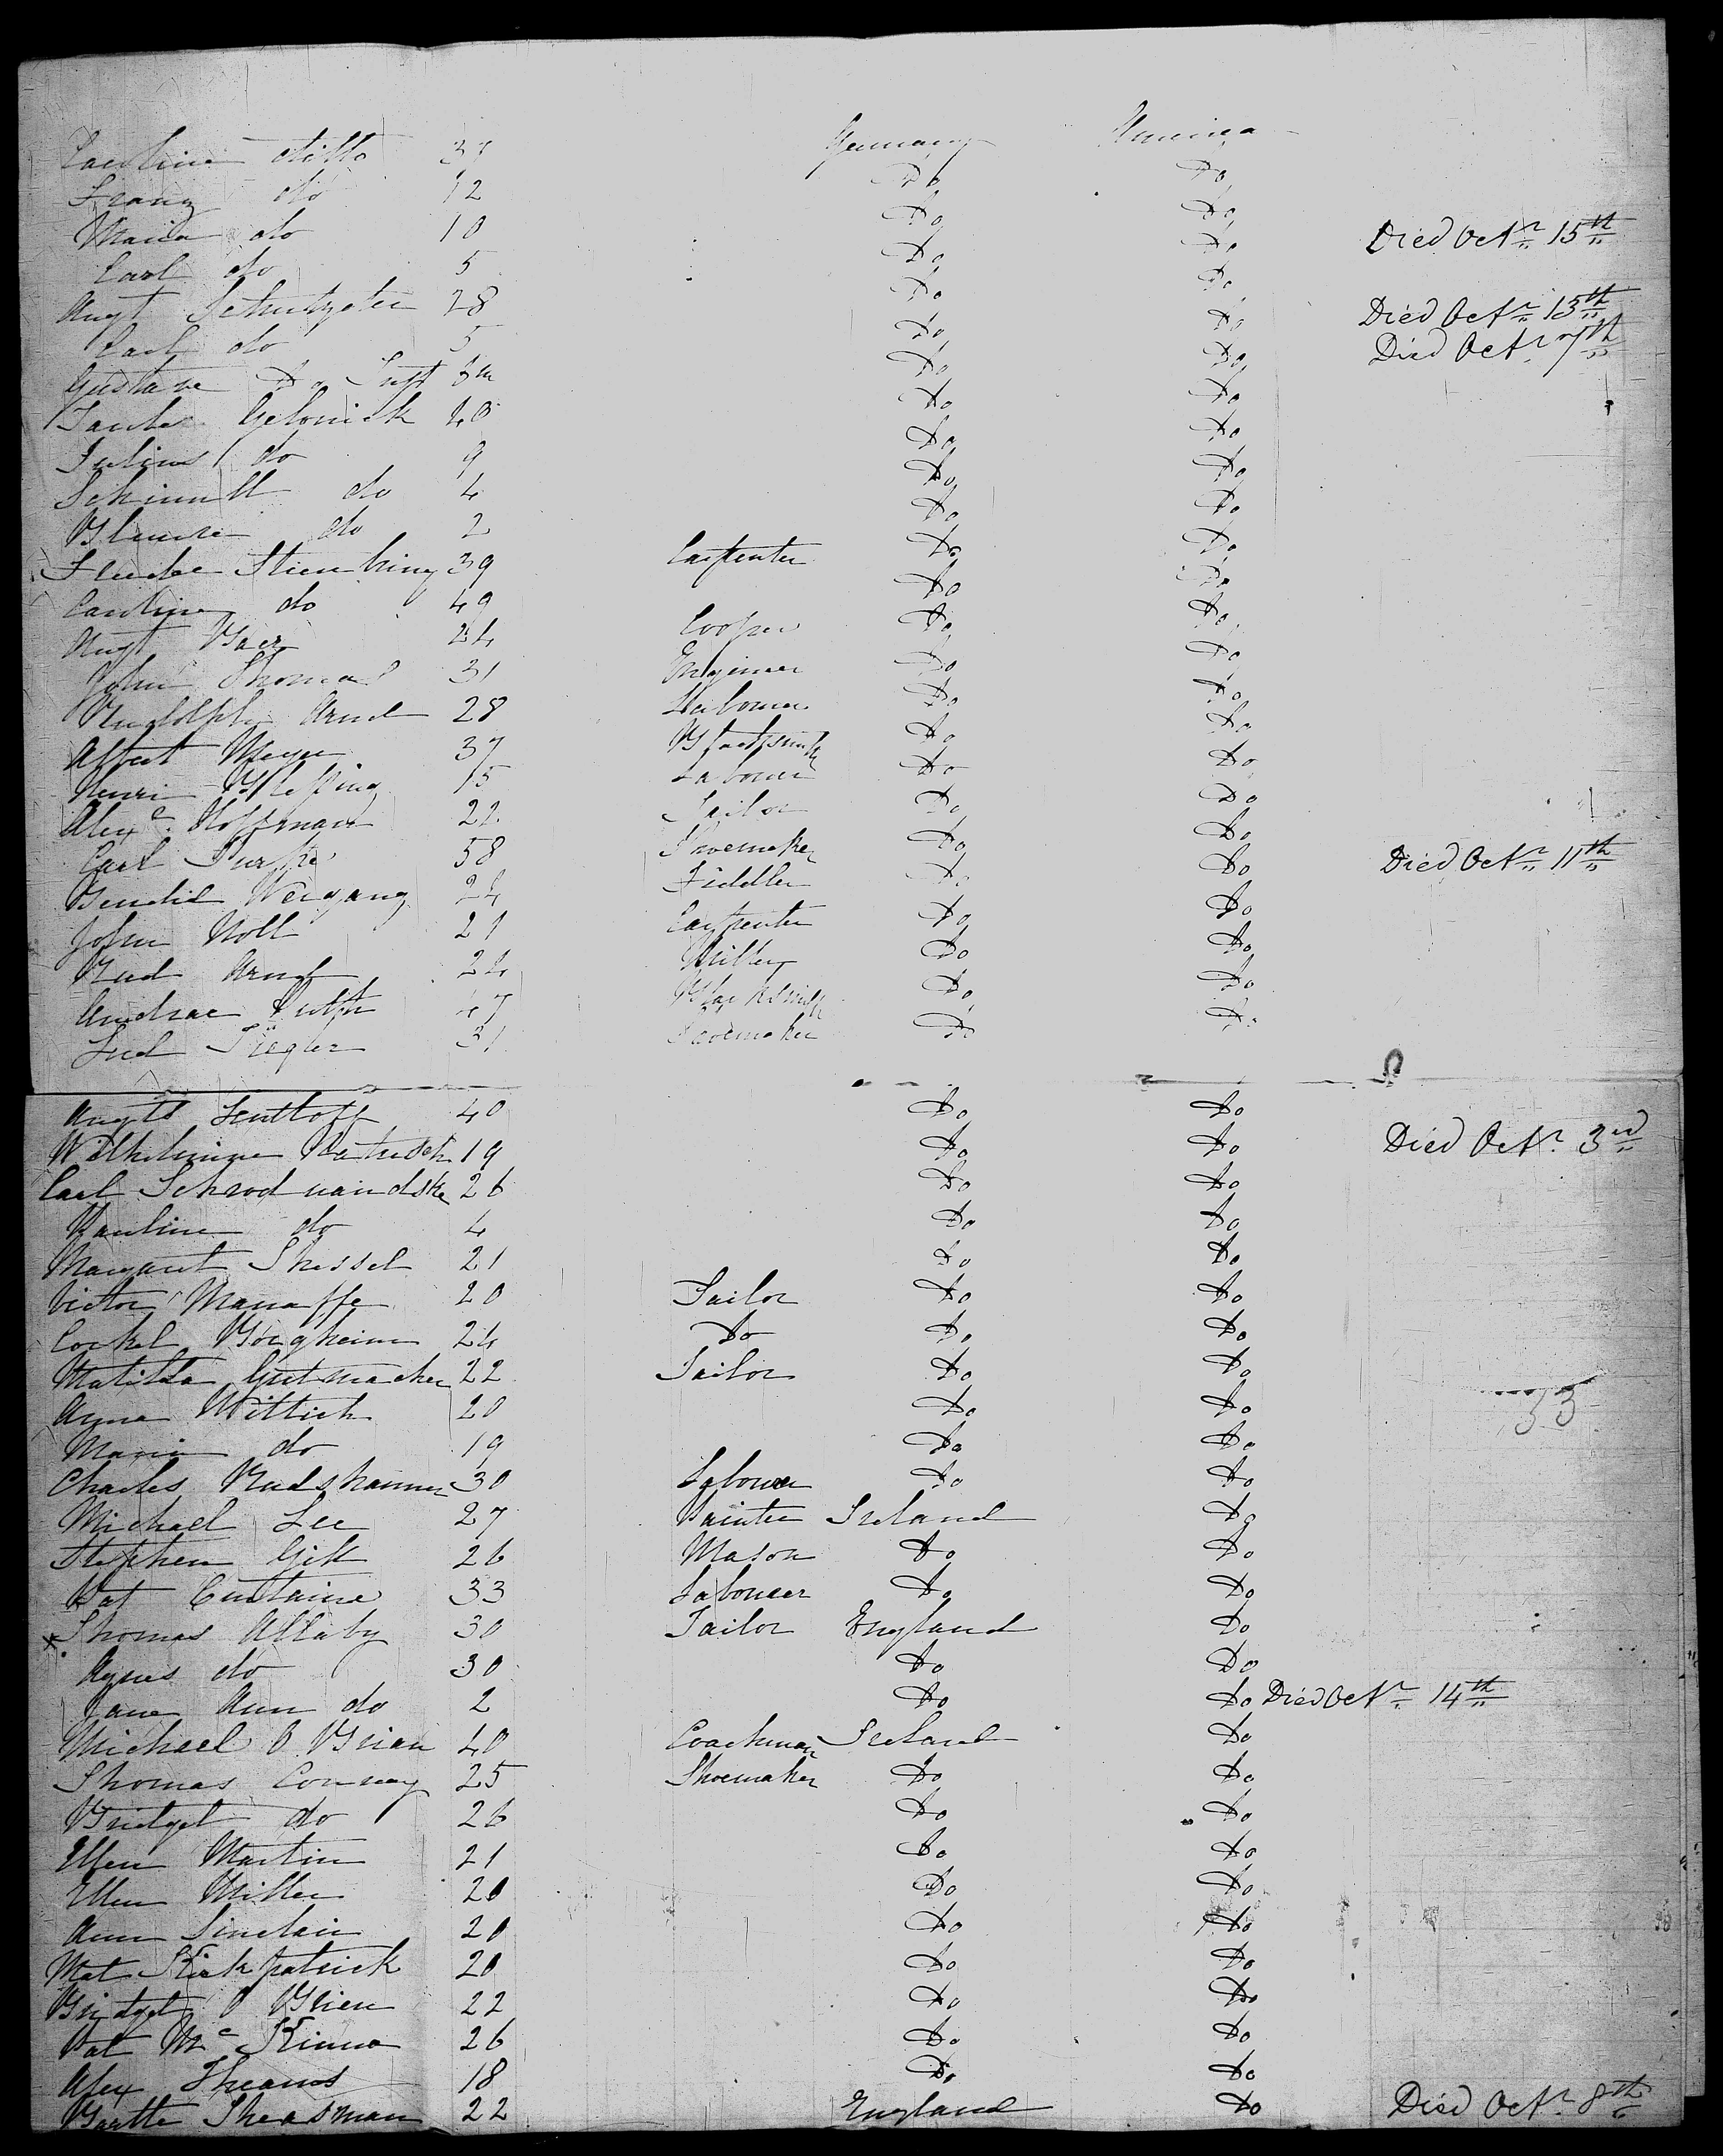 Caroline ditto 37 Germany America
Franz do 12 Do Do
Maria do 10 Do Do Died Octr 15th
Carl do 5 Do Do
Augt 28 Do Do Died Octr 13th
Carl do 5 Do Do Died Octr 7th
Gustave Do Inft Do Do
Gelonick 40 Do Do
Julius do 9 Do Do
do 4 Do Do
do 2 Do Do
39 Carpenter Do Do
Caroline do 49 Do Do
Augt Baer 24 Cooper Do Do
John Thomas 31 Engineer Do Do
Rudolph Arnd 28 Labourer Do Do
Albert Meyer 37 Blacksmith Do Do
Henri Blessing 15 Labourer Do Do
Alexr Hoffman 22 Tailor Do Do
Carl 58 Shoemaker Do Do Died Octr 11th
Weigang 24 Fiddler Do Do
John Noll 21 Carpenter Do Do
Rud Arnd 24 Miller Do Do
Andrae 47 Blacksmith Do Do
Fred Siegler 31 Shoemaker Do Do
Augts Lenthoff 40 Do Do
Wilhelmine 19 Do Do Died Octr 3rd
Carl 26 Do Do
Pauline do 4 Do Do
Margaret Shessel 21 Do Do
Victor Manasse 20 Tailor Do Do
24 Do Do Do
Matilda Gutmacher 22 Tailor Do Do
Wittich 20 Do Do
Maria do 19 Do Do
Charles Radshammer 30 Labourer Do Do
Michael Lee 27 Painter Ireland Do
Stephen Gill 26 Mason Do Do
Pat Curtaine 33 Labourer Do Do
Thomas Allaby 30 Tailor England Do
Agnes do 30 Do Do
Jane Ann do 2 Do Do Died Octr 14th
Michael O Brian 40 Coachman Ireland Do
Thomas Conway 25 Shoemaker Do Do
Bridget do 26 Do Do
Ellen Martin 21 Do Do
Ellen Miller 20 Do Do
Ann Sinclair 20 Do Do
Mat Kirkpatrick 20 Do Do
Bridget O Brien 22 Do Do
Pat Mc Kinna 26 Do Do
Alex 18 Do Do
Sheasman 22 England Do Died Octr 8th